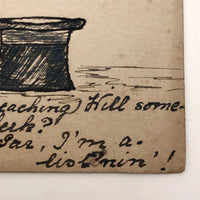 eaching) Will some-
lerk?
Par, I'm a-
lis'nin'!